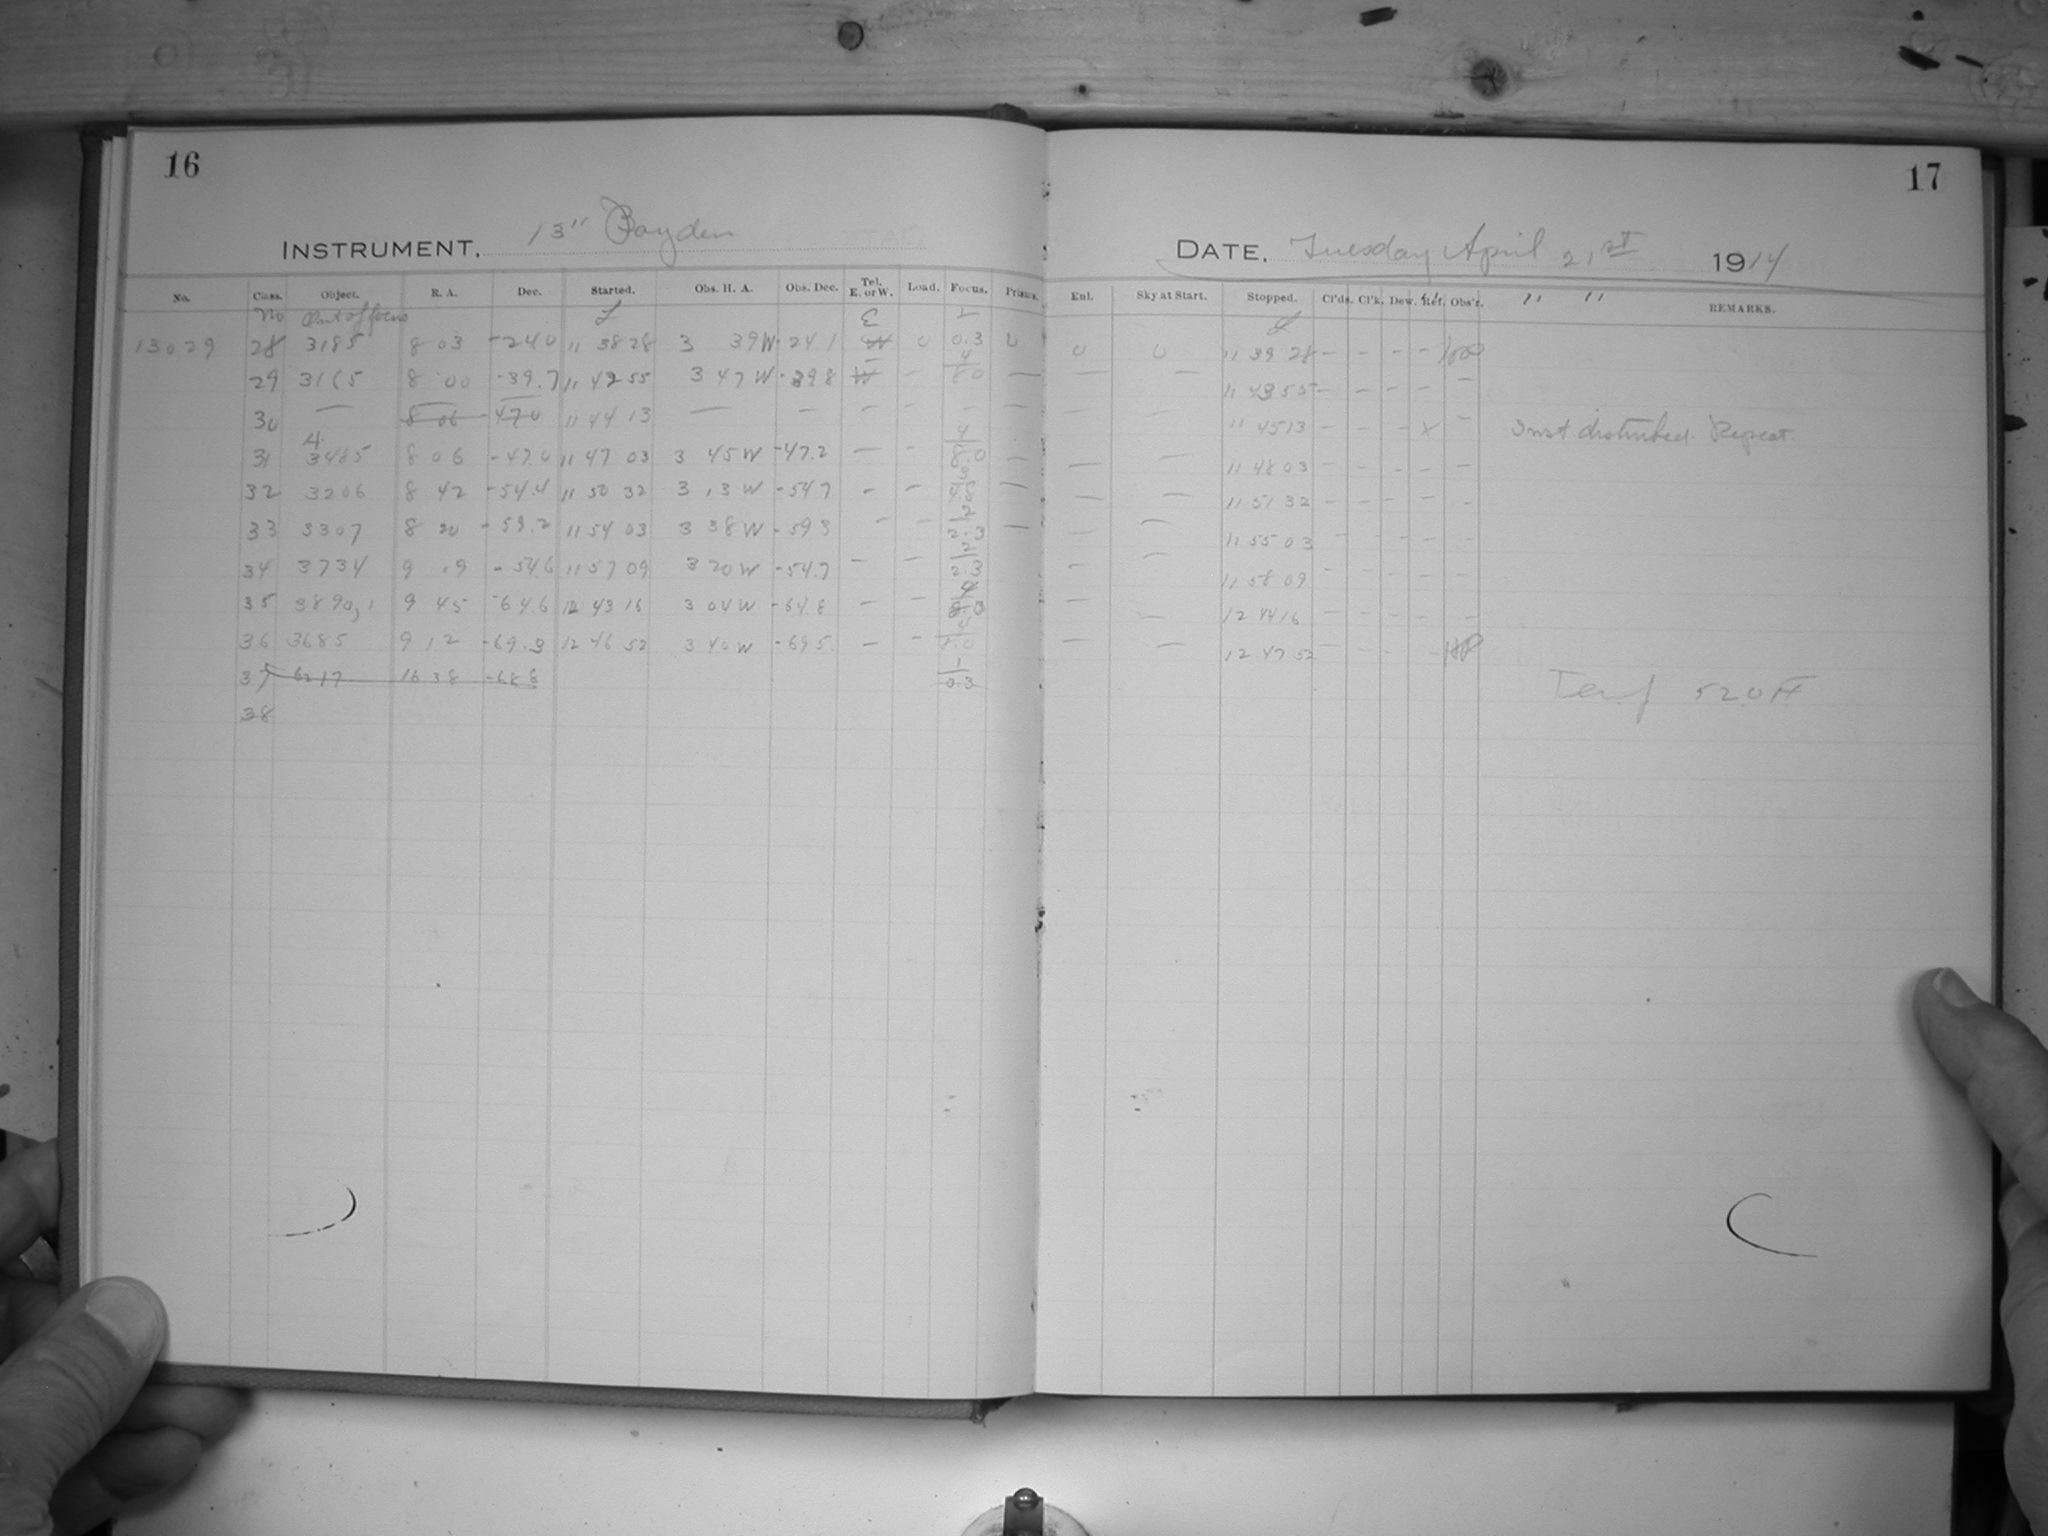 16
INSTRUMENT. 13" Boyden
No. Class. Object. R. A. Dec. Started. Obs. H. A. Obs. Dec. Tel. E. or W. Load. Focus. Prisms.
No Out of focus
13029 28 3185 8 03 -24.0 11 38 28 3 39 W -24 1 E W 0 0.3 0
29 3165 8 00 -39.7 11 42 55 3 47 W -39 8 W - 8 0 —
30 — 8 06 47 0 11 44 13 — — - - - —
31 3485 8 06 -47.0 11 47 03 3 45 W -47.2 — - 8.0 —
32 3206 8 42 -54.4 11 50 32 3 13 W -54 7 - — —
33 3307 8 20 -59.2 11 54 03 3 38 W -59 3 - - 2.3 —
34 3734 9 19 -54.6 11 57 09 3 20 W -54.7 — - 2.3
35 3890,1 9 45 -64.6 12 43 16 3 04 W -64.8 — -
36 3685 9 12 -69.3 12 46 52 3 40 W -69 5 — -
37 6217 16 38 -68 8 0.3
38
17
DATE. Tuesday April 21st 1914
Enl. Sky at Start. Stopped. Cl'ds. Cl'k. Dew. Ref. Obs'r. " " REMARKS.
0 0 11 39 28 - - - -
— — 11 43 55 - - - - -
11 45 13 - - - x - Inst disturbed. Repeat.
— — 11 48 03 - - - - -
— — 11 51 32 - - - - -
- — 11 55 03 - - - - -
- — 11 58 09 - - - - -
— — 12 44 16 - - - - -
— — 12 47 52 - - - -
Temp 52.0 F